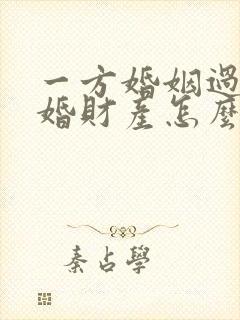 一方婚姻過
婚財產怎麼
秦占學